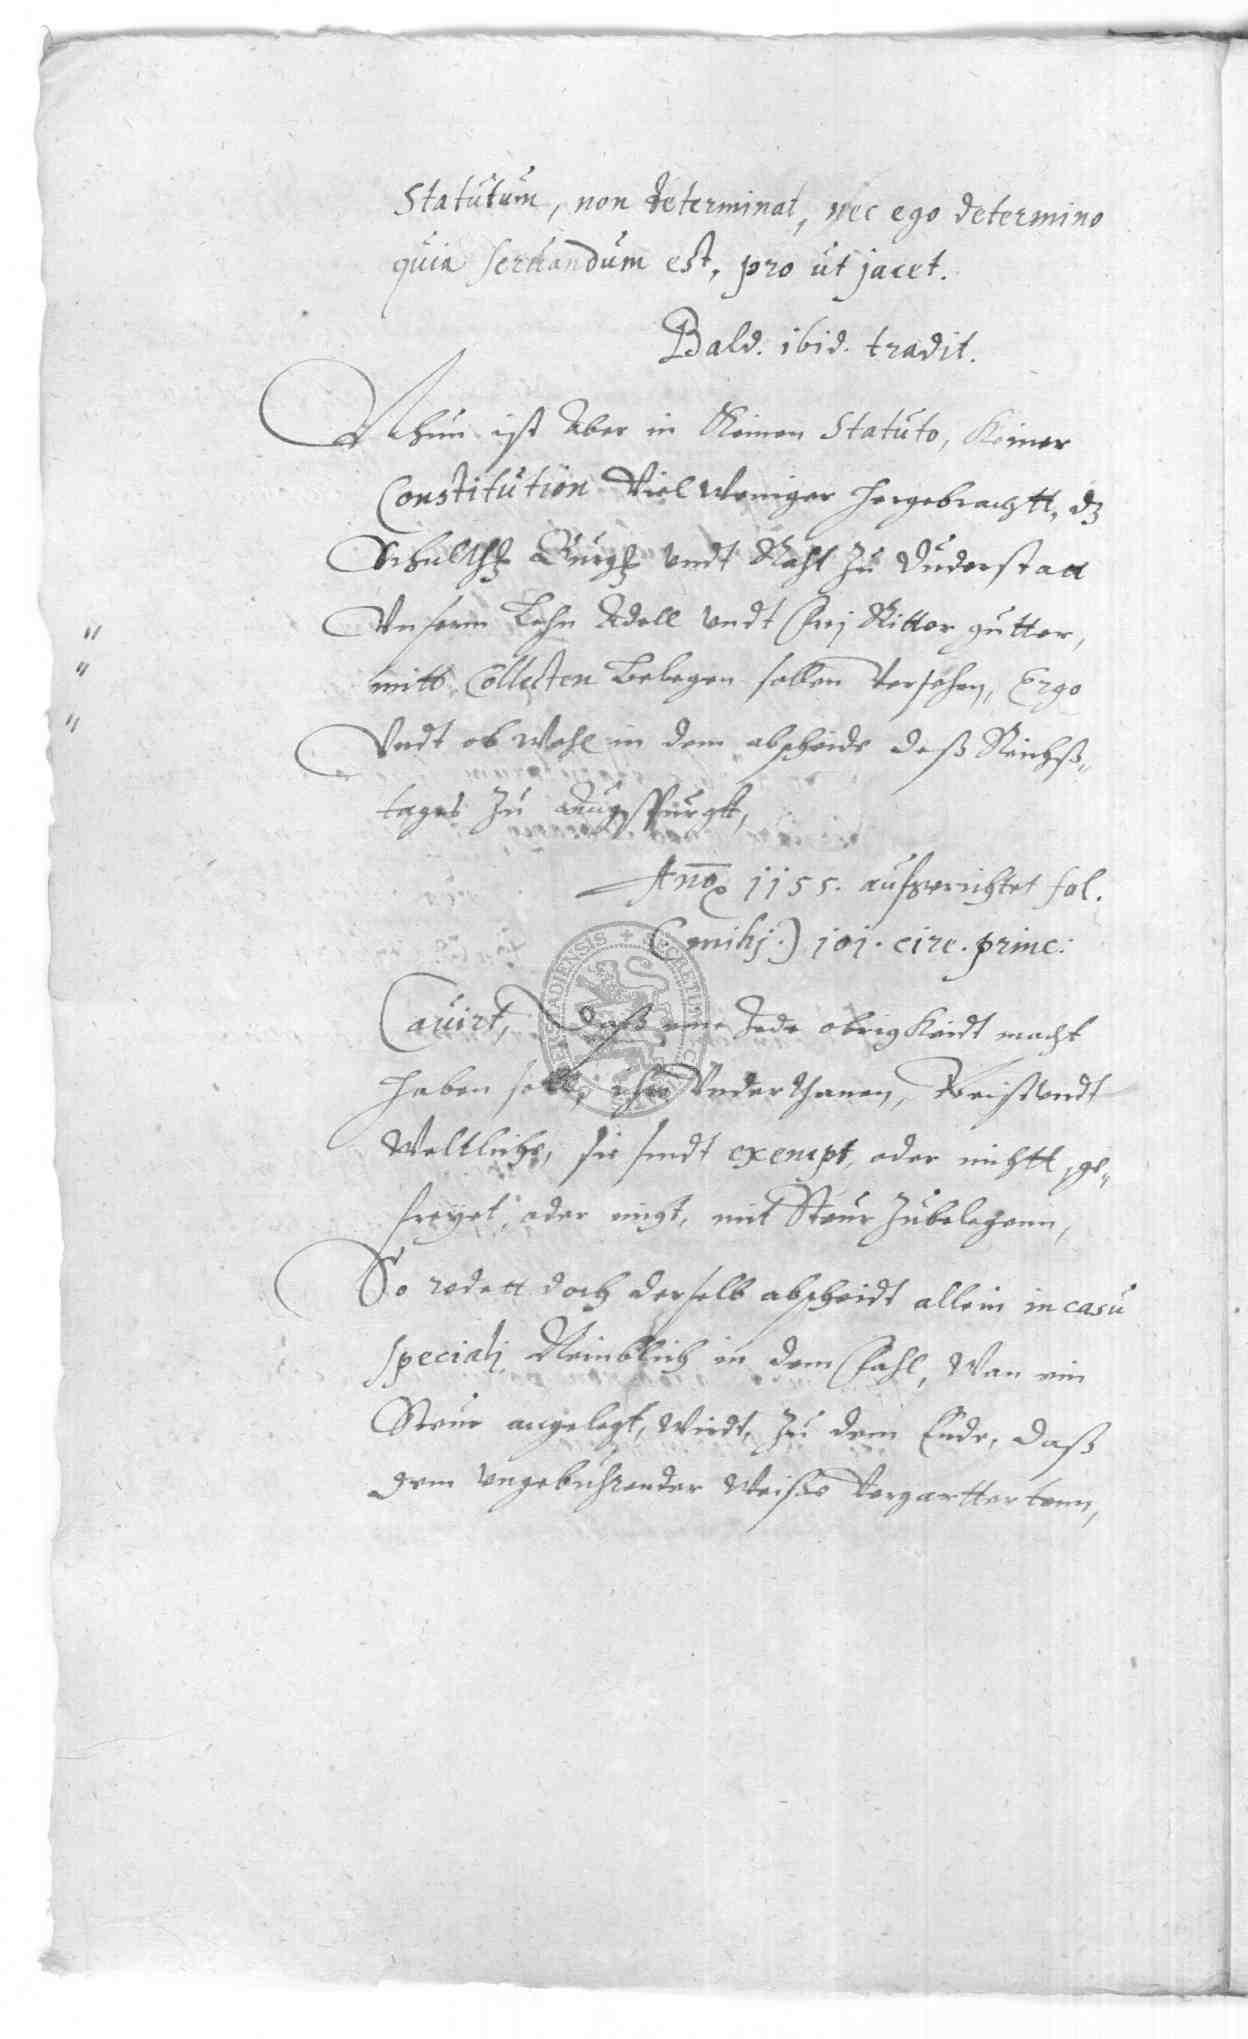 Statutum, non determinat, nec ego determino
quia seruandum est, pro ut jacet.
Bald. ibid. tradit.
Nhun ist Aber in Keinen Statuto, Keiner
Constitution Viel weniger hergebrachtt, dz
Schulthß Burgß undt Raht zu Duderstatt
Unserm Lehn Adell undt Frej Ritter gutter,
mitt Collecten Belegen sollen Versehen, Ergo
Undt ob wohl in dem abscheide deß Reichß-
tages zu Augspurgk,
Anno 1155. aufgerichtet fol.
(mihj.) 101. circ. princ:
Cavirt, daß eine Jede obrigkeidt macht
haben soll, ihre Underthanen, Geist undt
Weltliche, sie sindt exempt, oder nichtt, ge-
freyet, oder nigt, mit Steur zubelegenn,
So redett doch derselb abscheidt allein in casu
speciali Nemblich in dem Fahl, Wan ein
Steur angelegt, Wirdt, zu dem Ende, daß
dem ungebuhrender Weiße Vergartterten,
SECRETUM